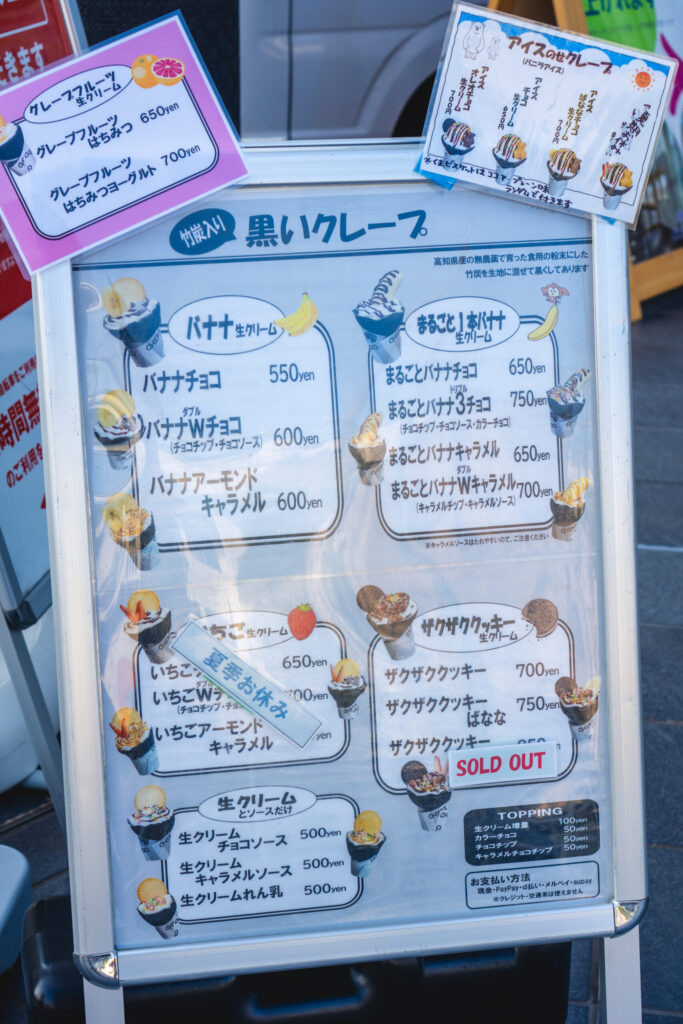 グレープフルーツ
生クリーム
グレープフルーツ
はちみつ 650yen
グレープフルーツ 700yen
はちみつヨーグルト
アイスのせクレープ
(バニラアイス)
アイス
オレオチョコ
生クリーム
700円
アイス
チョコ
生クリーム
650円
アイス
ばななチョコ
生クリーム
700円
※くまビスケットはココア・プレーンの
ランダムで付きます
竹炭入り
黒いクレープ
高知県産の無農薬で育った食用の粉末にした
竹炭を生地に混ぜて黒くしてあります
バナナ 生クリーム
バナナチョコ 550yen
ダブル
バナナWチョコ
(チョコチップ・チョコソース) 600yen
バナナアーモンド
キャラメル 600yen
まるごと1本バナナ
生クリーム
まるごとバナナチョコ 650yen
トリプル
まるごとバナナ3チョコ 750yen
(チョコチップ・チョコソース・カラーチョコ)
まるごとバナナキャラメル 650yen
ダブル
まるごとバナナWキャラメル 700yen
(キャラメルチップ・キャラメルソース)
※キャラメルソースはたれやすいので、ご注意ください
ちご 生クリーム
いちご 650yen
ダブル
いちごW 700yen
(チョコチップ・チョコ
いちごアーモンド
キャラメル yen
夏季お休み
ザクザククッキー
生クリーム
ザクザククッキー 700yen
ザクザククッキー 750yen
ばなな
ザクザククッキー
SOLD OUT
生クリーム
とソースだけ
生クリーム
チョコソース 500yen
生クリーム
キャラメルソース 500yen
生クリームれん乳 500yen
TOPPING
生クリーム増量 100yen
カラーチョコ 50yen
チョコチップ 50yen
キャラメルチョコチップ 50yen
お支払い方法
現金・PayPay・d払い・メルペイ・auPAY
※クレジット・交通系は使えません
時間無
のご利用を